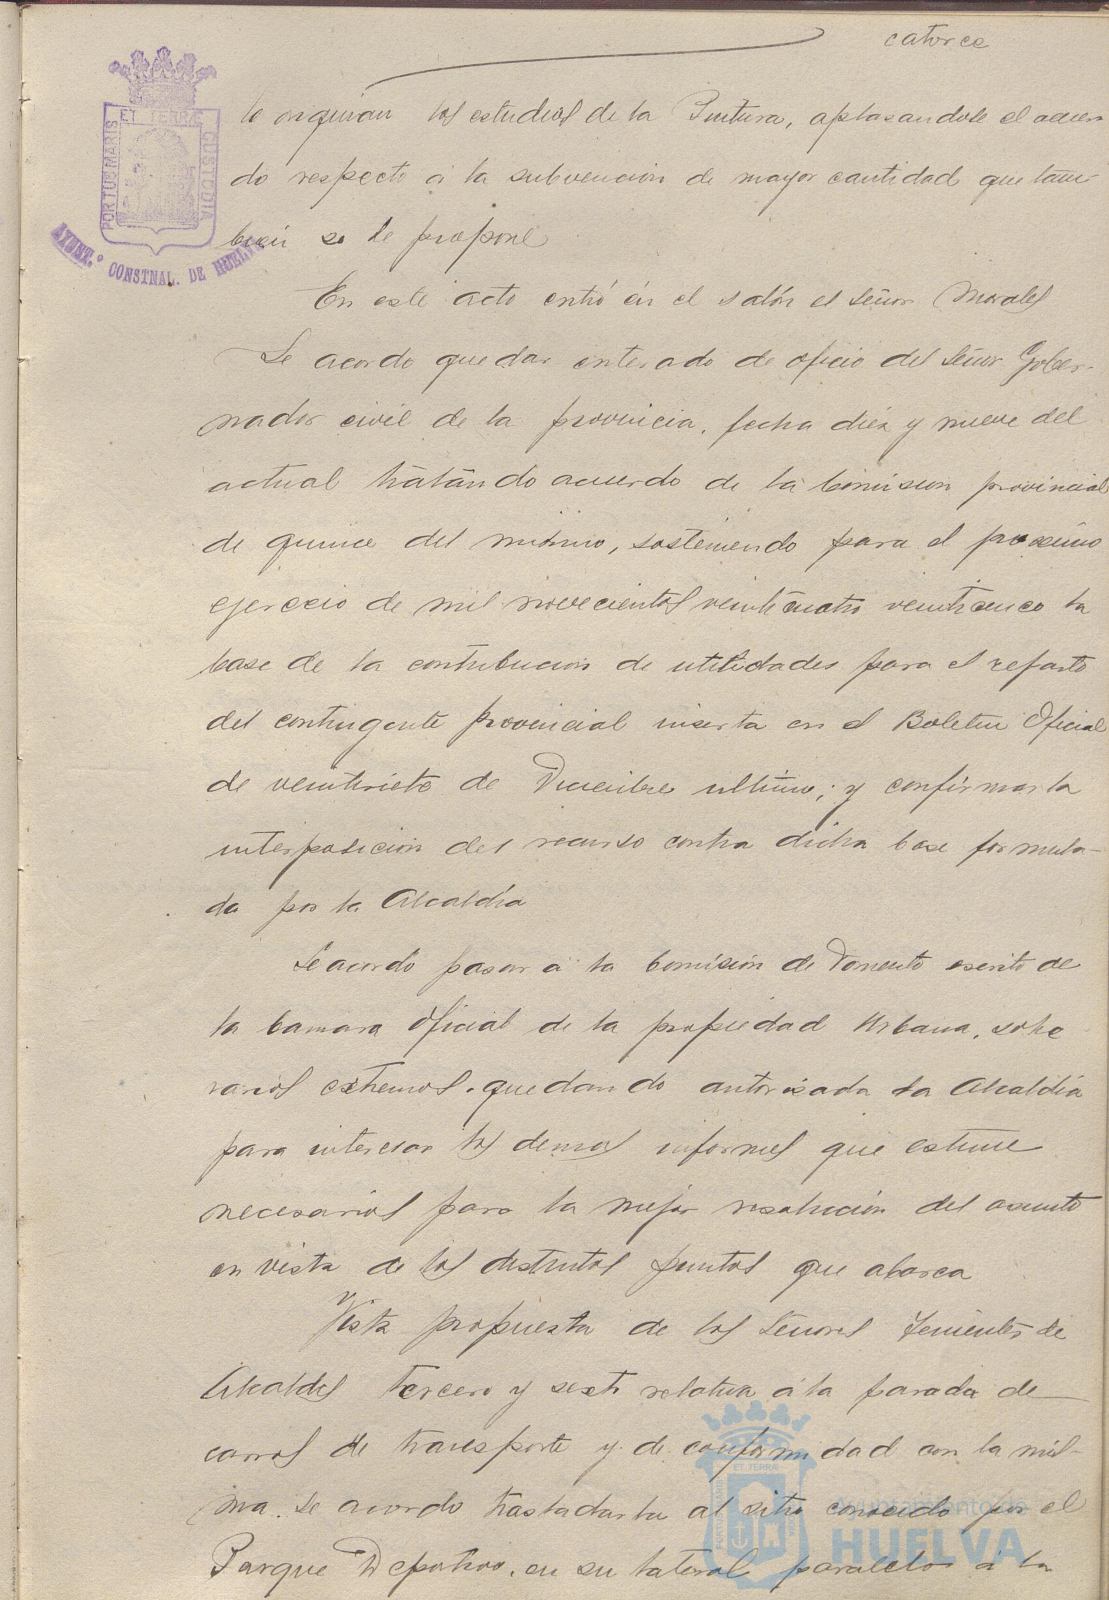 catorce
le sigueran los estudios de la Pintura, aplasandole el acuer-
do respecto á la subvencion de mayor cantidad que tam-
bien se le propone
En este acto entró en el salón el Señor Morales
Se acordo quedar enterado de oficio del Señor Gober-
nador civil de la provincia, fecha diez y nueve del
actual acuerdo de la Comision provincial
de quince del mismo, sosteniendo para el proximo
ejercicio de mil novecientos veinticuatro veinticinco la
base de la contribucion de utilidades para el reparto
del contingente provincial inserta en el Boletin Oficial
de veintisiete de Diciembre ultimo; y confirmar la
interposicion del recurso contra dicha base formula-
da por la Alcaldía
Se acordo pasar a la Comisión de Fomento escrito de
la Camara Oficial de la propiedad Urbana, sobre
varios extremos, quedando autorizada la Alcaldía
para interesar los demas informes que estime
necesarios para la mejor resolución del asunto
en vista de los distintos puntos que abarca
Vista propuesta de los Señores Tenientes de
Alcaldes tercero y sexto relativa á la parada de
carros de transporte y de conformidad con la mis-
ma se acordo trasladarla al sitio conocido por el
Parque Deportivo, en su lateral paralelo á la
PORTUS MARIS
ET TERRÆ
CUSTODIA
AYUNT.º CONSTNAL. DE HUELVA
Ayuntamiento de
HUELVA